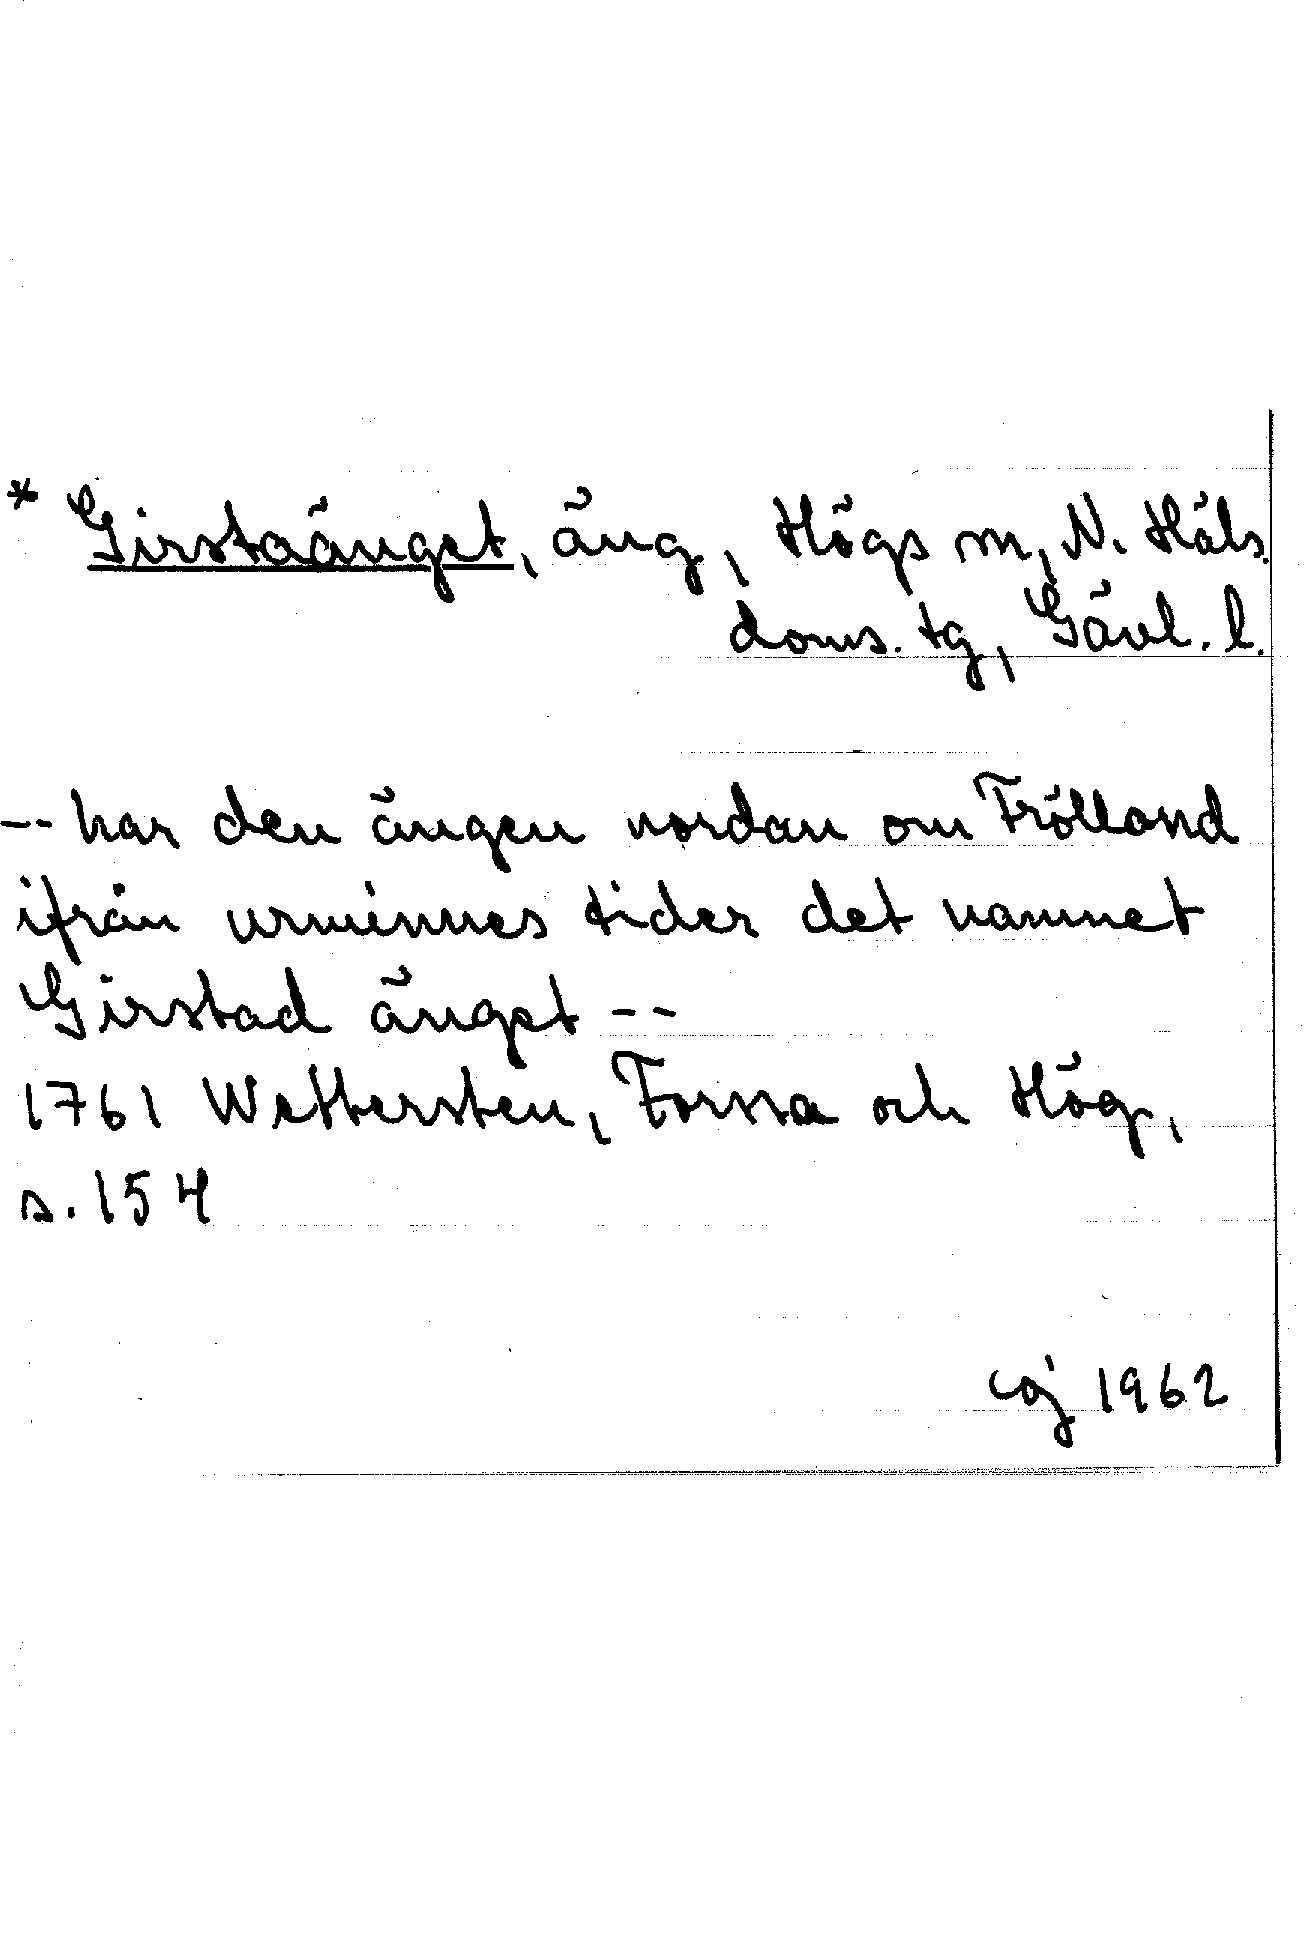 * Girstaänget, äng, Högs sn, N. Häls.
doms. tg, Gävl. l.
-- har den ängen nordan om Frölland
ifrån urminnes tider det namnet
Girstad änget --
1761 Wettersten, Forssa och Hög,
s. 154
caj 1962